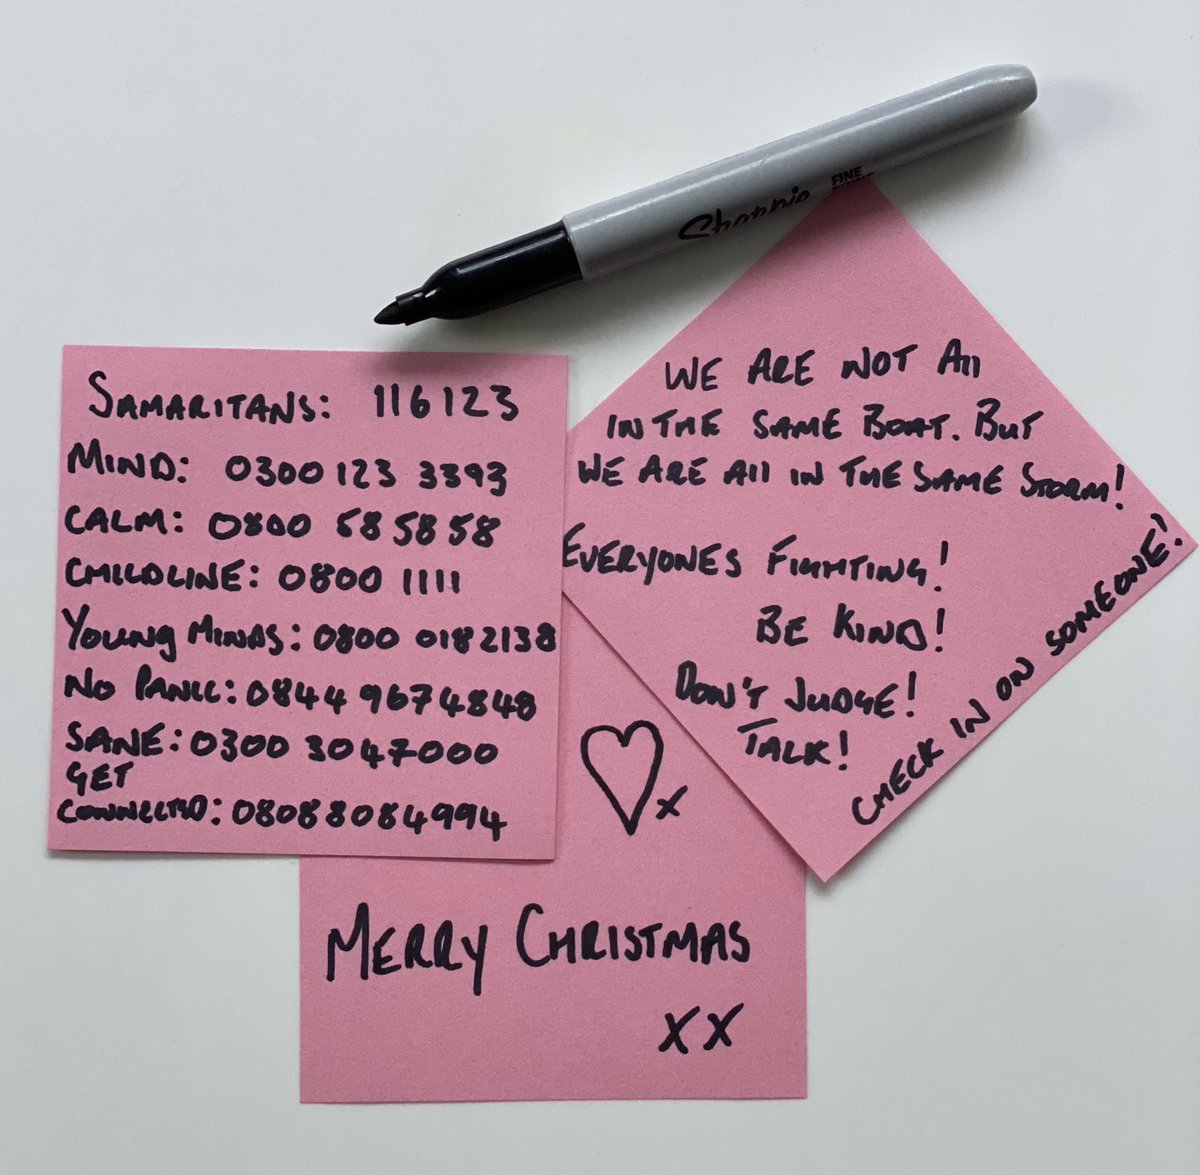 Sharpie FINE
SAMARITANS: 116123
MIND: 0300 123 3393
CALM: 0800 585858
CHILDLINE: 0800 1111
YOUNG MINDS: 0800 0182138
NO PANIC: 0844 9674848
SANE: 0300 3047000
GET
CONNECTED: 08088084994
WE ARE NOT All
IN THE SAME BOAT. BUT
WE ARE All IN THE SAME STORM!
EVERYONE'S FIGHTING!
BE KIND!
DON'T JUDGE!
TALK!
CHECK IN ON SOMEONE!
x
MERRY CHRISTMAS
XX